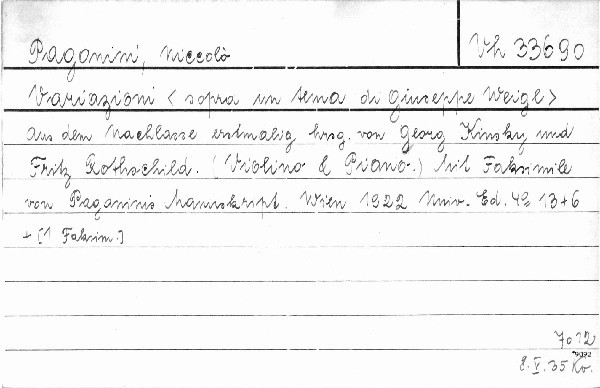 Paganini, Niccolò
Vh 33690
Variazioni < sopra un tema di Giuseppe Weigl >
Aus dem Nachlasse erstmalig hrsg. von Georg Kinsky und
Fritz Rothschild. (Violino & Piano.) Mit Faksimile
von Paganinis Manuskript. Wien 1922 Univ. Ed. 4º 13+6
+ [1 Faksim.]
7012
8.V.35 Kv.